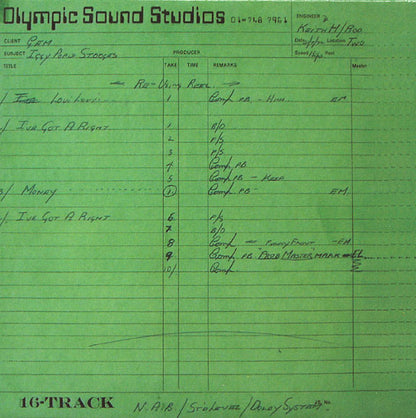 Olympic Sound Studios 01-748 7961
ENGINEER Keith H/Rod
CLIENT GEM
Date Location Two
SUBJECT Iggy Pop & Stooges
Speed Reel
PRODUCER
TITLE TAKE TIME REMARKS Master
Re-Using Reel
Low 1 Comp PB - EM
I've Got A Right 1 B/O
2 F/S
3 F/S
4 Comp PB
5 Comp PB - Keep
Money 1 Comp PB EM
I've Got A Right 6 F/S
7 B/O
8 Comp EM
9 Comp PB "Prod Master" mark
10 Comp
16-TRACK
N.A.B / Level / Dolby System